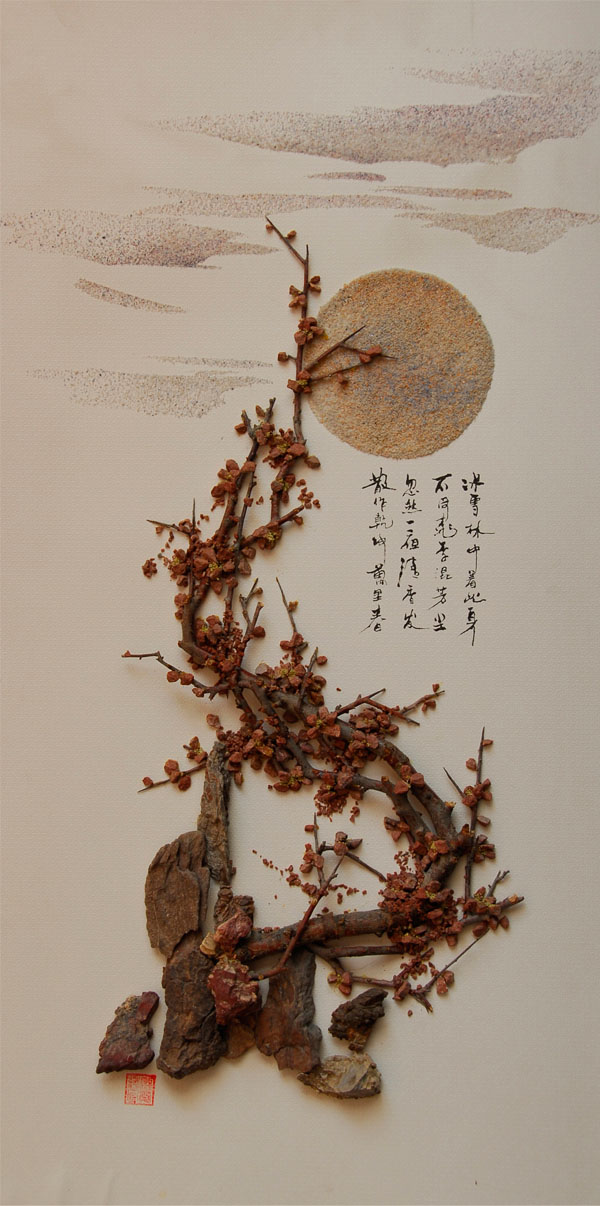 冰雪林中着此身
不同桃李混芳尘
忽然一夜清香发
散作乾坤萬里春